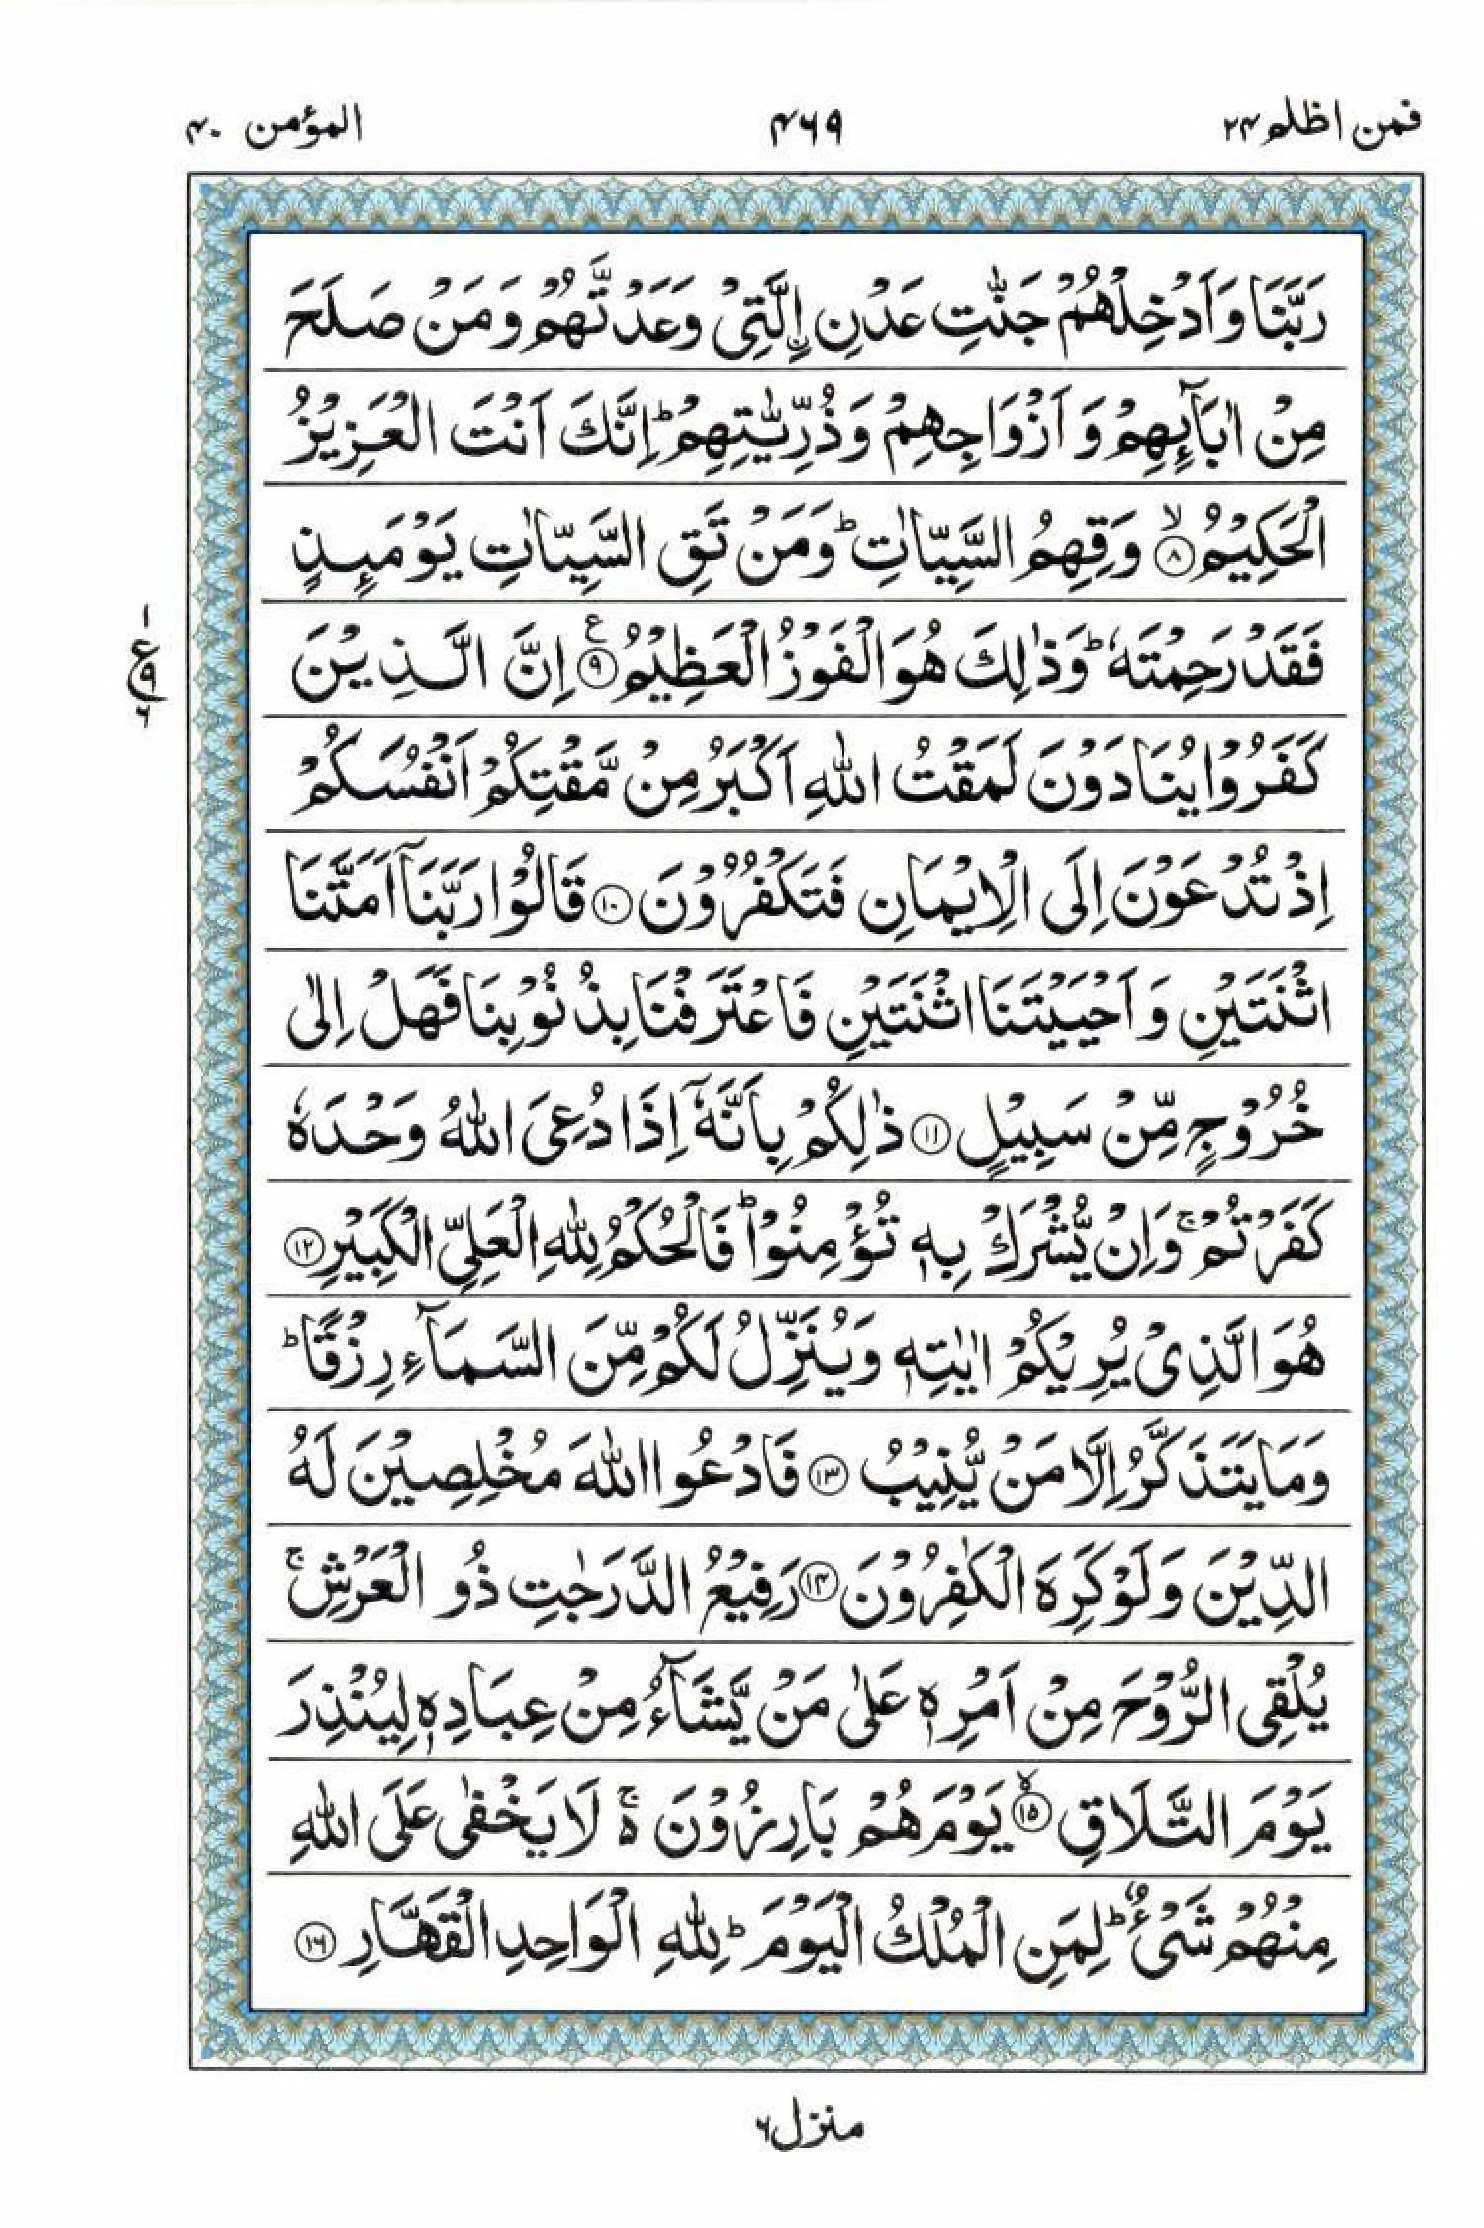 فمن اظلم ۲۴
۴۶۹
المؤمن ۴۰
رَبَّنَا وَاَدْخِلْهُمْ جَنّٰتِ عَدْنِ ۨالَّتِیْ وَعَدْتَّهُمْ وَمَنْ صَلَحَ
مِنْ اٰبَآئِهِمْ وَ اَزْوَاجِهِمْ وَذُرِّیّٰتِهِمْ ؕ اِنَّكَ اَنْتَ الْعَزِیْزُ
الْحَكِیْمُ ۙ﴿۸﴾ وَقِهِمُ السَّیِّاٰتِ ؕ وَمَنْ تَقِ السَّیِّاٰتِ یَوْمَىِٕذٍ
فَقَدْ رَحِمْتَهٗ ؕ وَذٰلِكَ هُوَ الْفَوْزُ الْعَظِیْمُ ﴿۹﴾ ع اِنَّ الَّذِیْنَ
كَفَرُوْا یُنَادَوْنَ لَمَقْتُ اللّٰهِ اَكْبَرُ مِنْ مَّقْتِكُمْ اَنْفُسَكُمْ
اِذْ تُدْعَوْنَ اِلَی الْاِیْمَانِ فَتَكْفُرُوْنَ ﴿۱۰﴾ قَالُوْا رَبَّنَاۤ اَمَتَّنَا
اثْنَتَیْنِ وَ اَحْیَیْتَنَا اثْنَتَیْنِ فَاعْتَرَفْنَا بِذُنُوْبِنَا فَهَلْ اِلٰی
خُرُوْجٍ مِّنْ سَبِیْلٍ ﴿۱۱﴾ ذٰلِكُمْ بِاَنَّهٗۤ اِذَا دُعِیَ اللّٰهُ وَحْدَهٗ
كَفَرْتُمْ ۚ وَاِنْ یُّشْرَكْ بِهٖ تُؤْمِنُوْا ؕ فَالْحُكْمُ لِلّٰهِ الْعَلِیِّ الْكَبِیْرِ ﴿۱۲﴾
هُوَ الَّذِیْ یُرِیْكُمْ اٰیٰتِهٖ وَیُنَزِّلُ لَكُمْ مِّنَ السَّمَآءِ رِزْقًا ؕ
وَمَا یَتَذَكَّرُ اِلَّا مَنْ یُّنِیْبُ ﴿۱۳﴾ فَادْعُوا اللّٰهَ مُخْلِصِیْنَ لَهُ
الدِّیْنَ وَلَوْ كَرِهَ الْكٰفِرُوْنَ ﴿۱۴﴾ رَفِیْعُ الدَّرَجٰتِ ذُو الْعَرْشِ ۚ
یُلْقِی الرُّوْحَ مِنْ اَمْرِهٖ عَلٰی مَنْ یَّشَآءُ مِنْ عِبَادِهٖ لِیُنْذِرَ
یَوْمَ التَّلَاقِ ۙ﴿۱۵﴾ یَوْمَ هُمْ بَارِزُوْنَ ۚ۬ لَا یَخْفٰی عَلَی اللّٰهِ
مِنْهُمْ شَیْءٌ ؕ لِمَنِ الْمُلْكُ الْیَوْمَ ؕ لِلّٰهِ الْوَاحِدِ الْقَهَّارِ ﴿۱۶﴾
۱
ع ۹
۶
منزل ۶